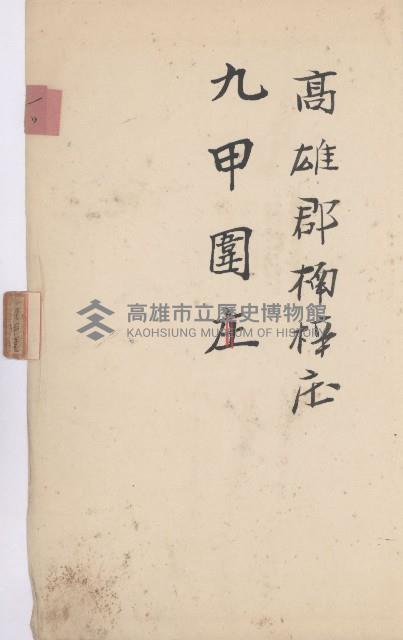 高雄郡楠梓庄
九甲圍庄
高雄市立歷史博物館
KAOHSIUNG MUSEUM OF HISTORY